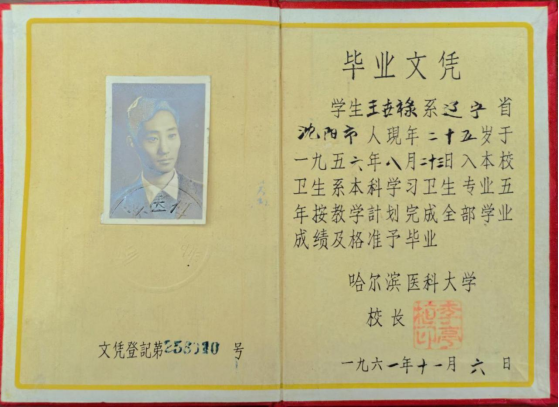 毕业文凭
学生王世禄系辽宁省
沈阳市人现年二十五岁于
一九五六年八月二十三日入本校
卫生系本科学习卫生专业五
年按教学計划完成全部学业
成绩及格准予毕业
哈尔滨医科大学
校长
一九六一年十一月六日
文凭登記第 号